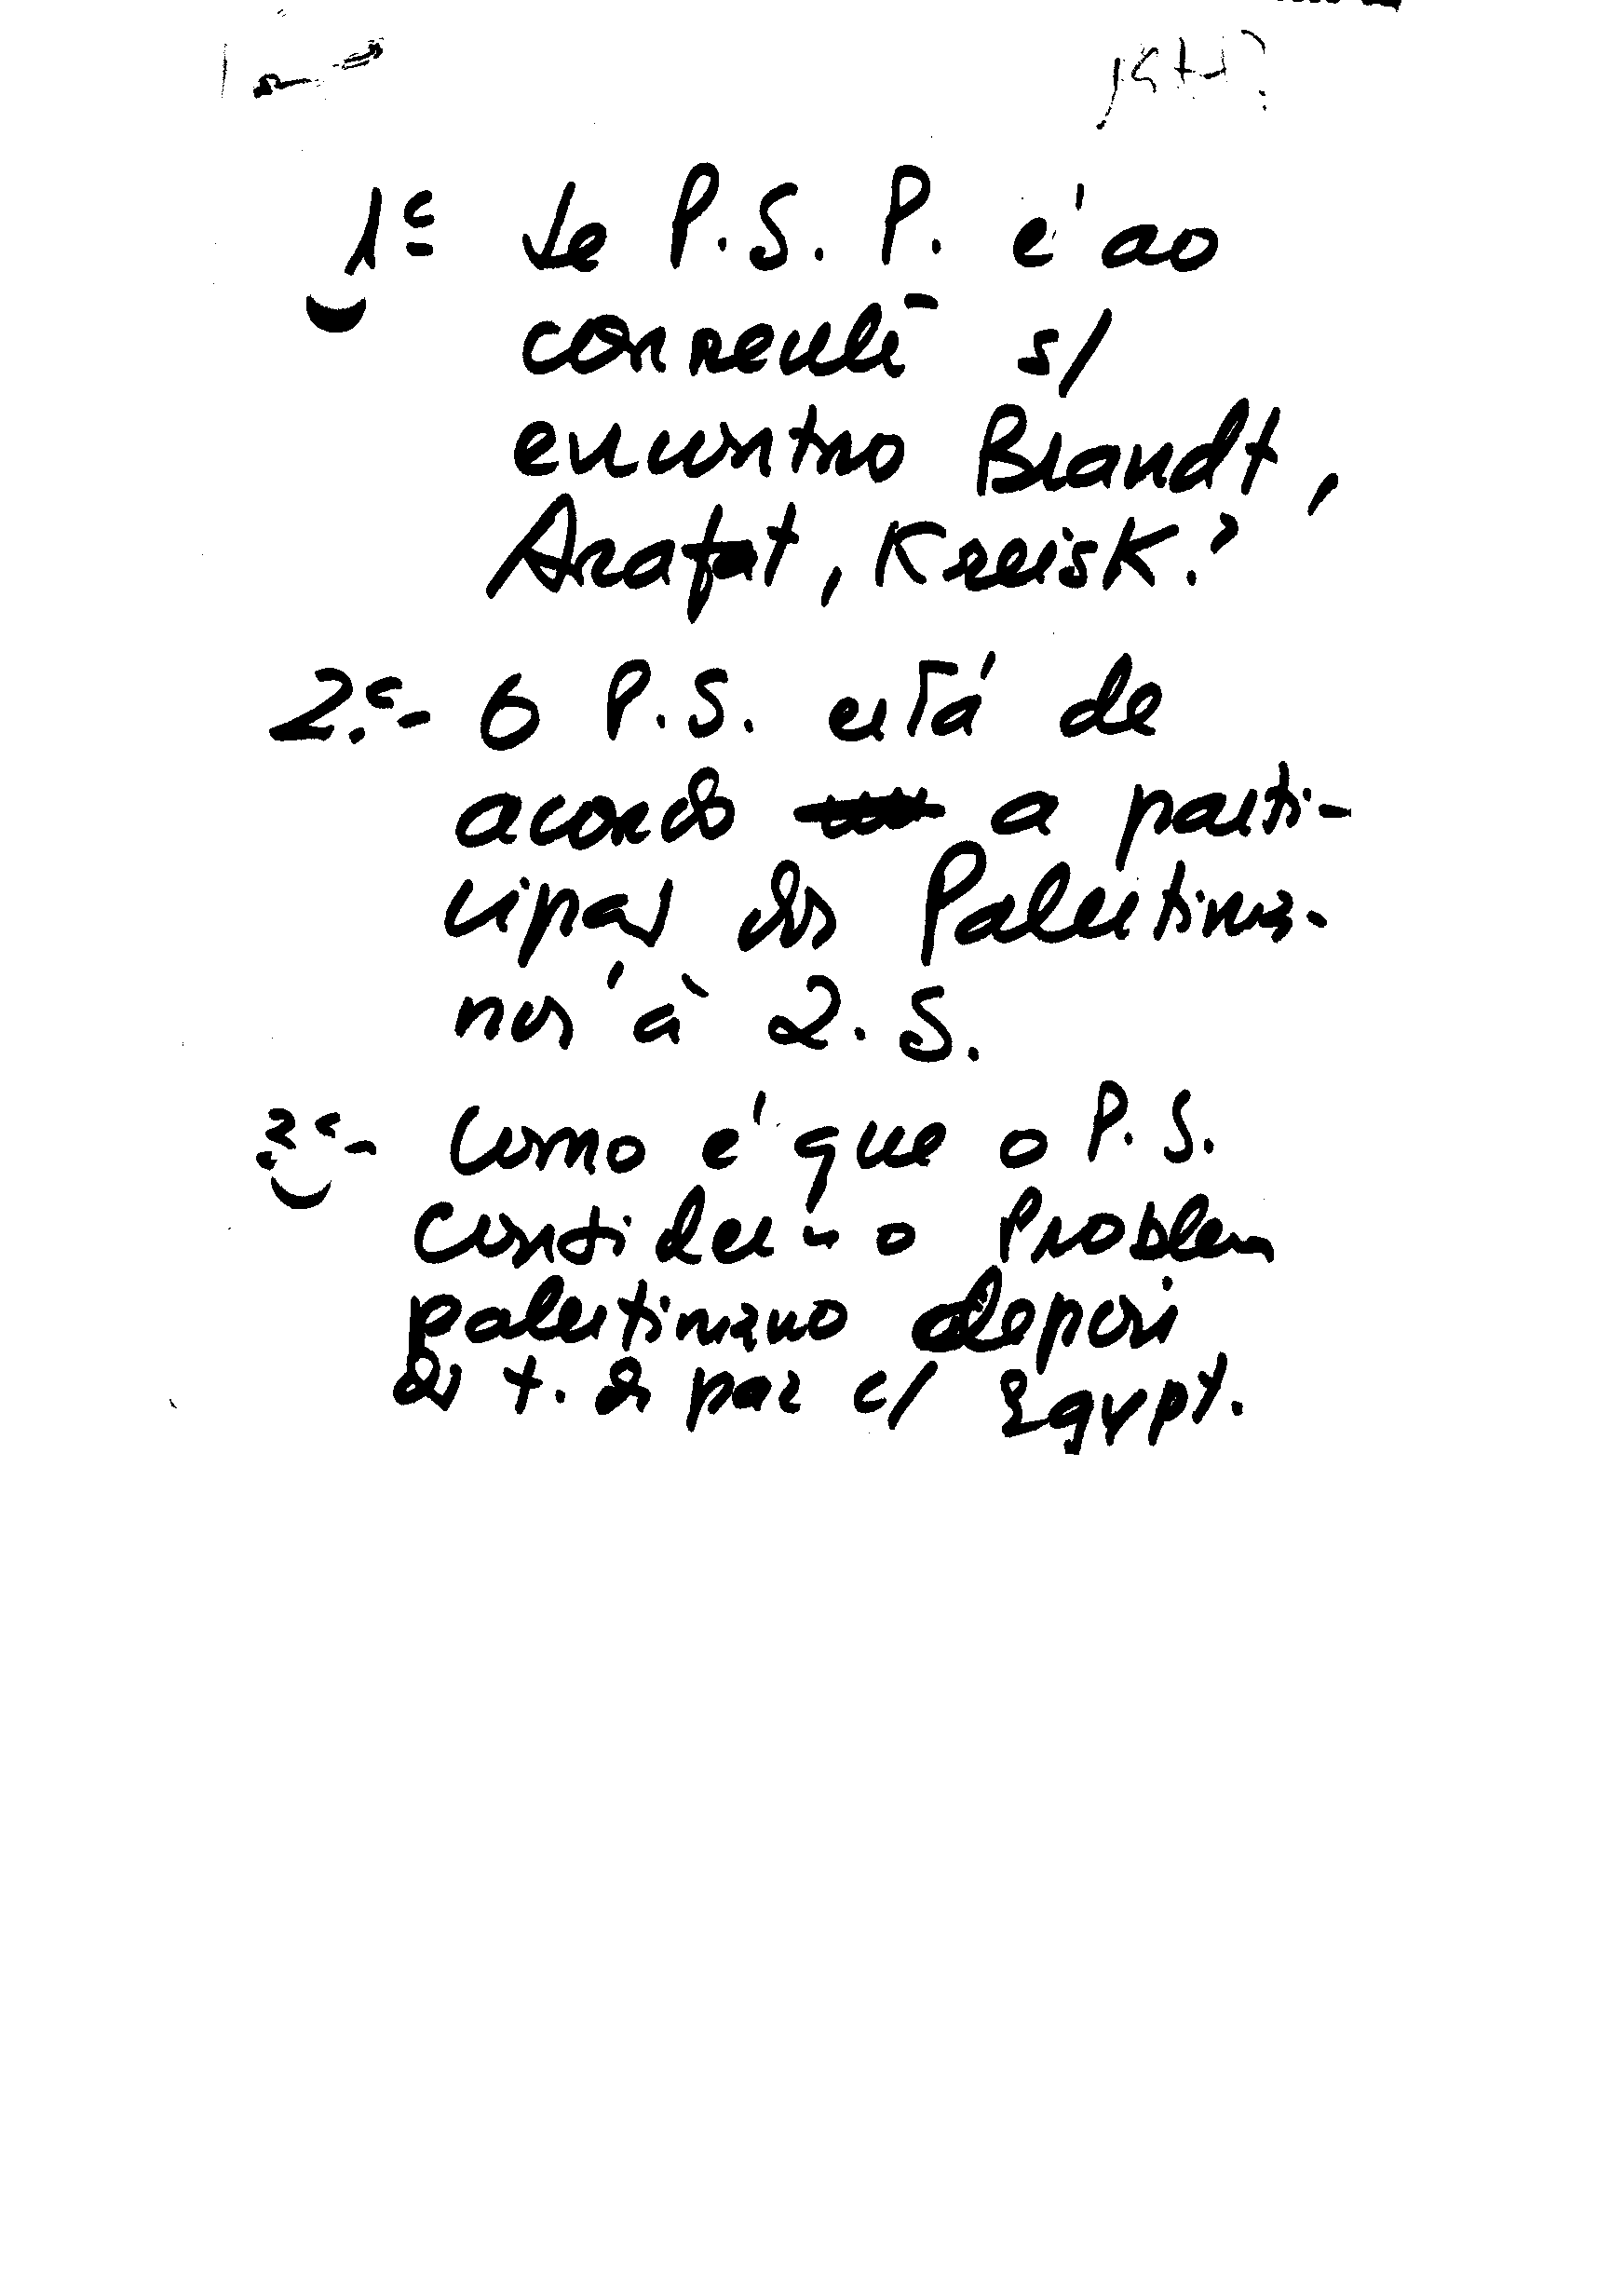 1º Se P.S.P. é ao
corrente s/
encontro Brandt,
Arafat, Kreisk?
2.º- O P.S. está de
acordo a parti-
cipar dos Palestinia-
nos à I.S.
3º- Como é que o P.S.
consider o Problem
palestiniano depois
do t. de paz c/ Egypt.